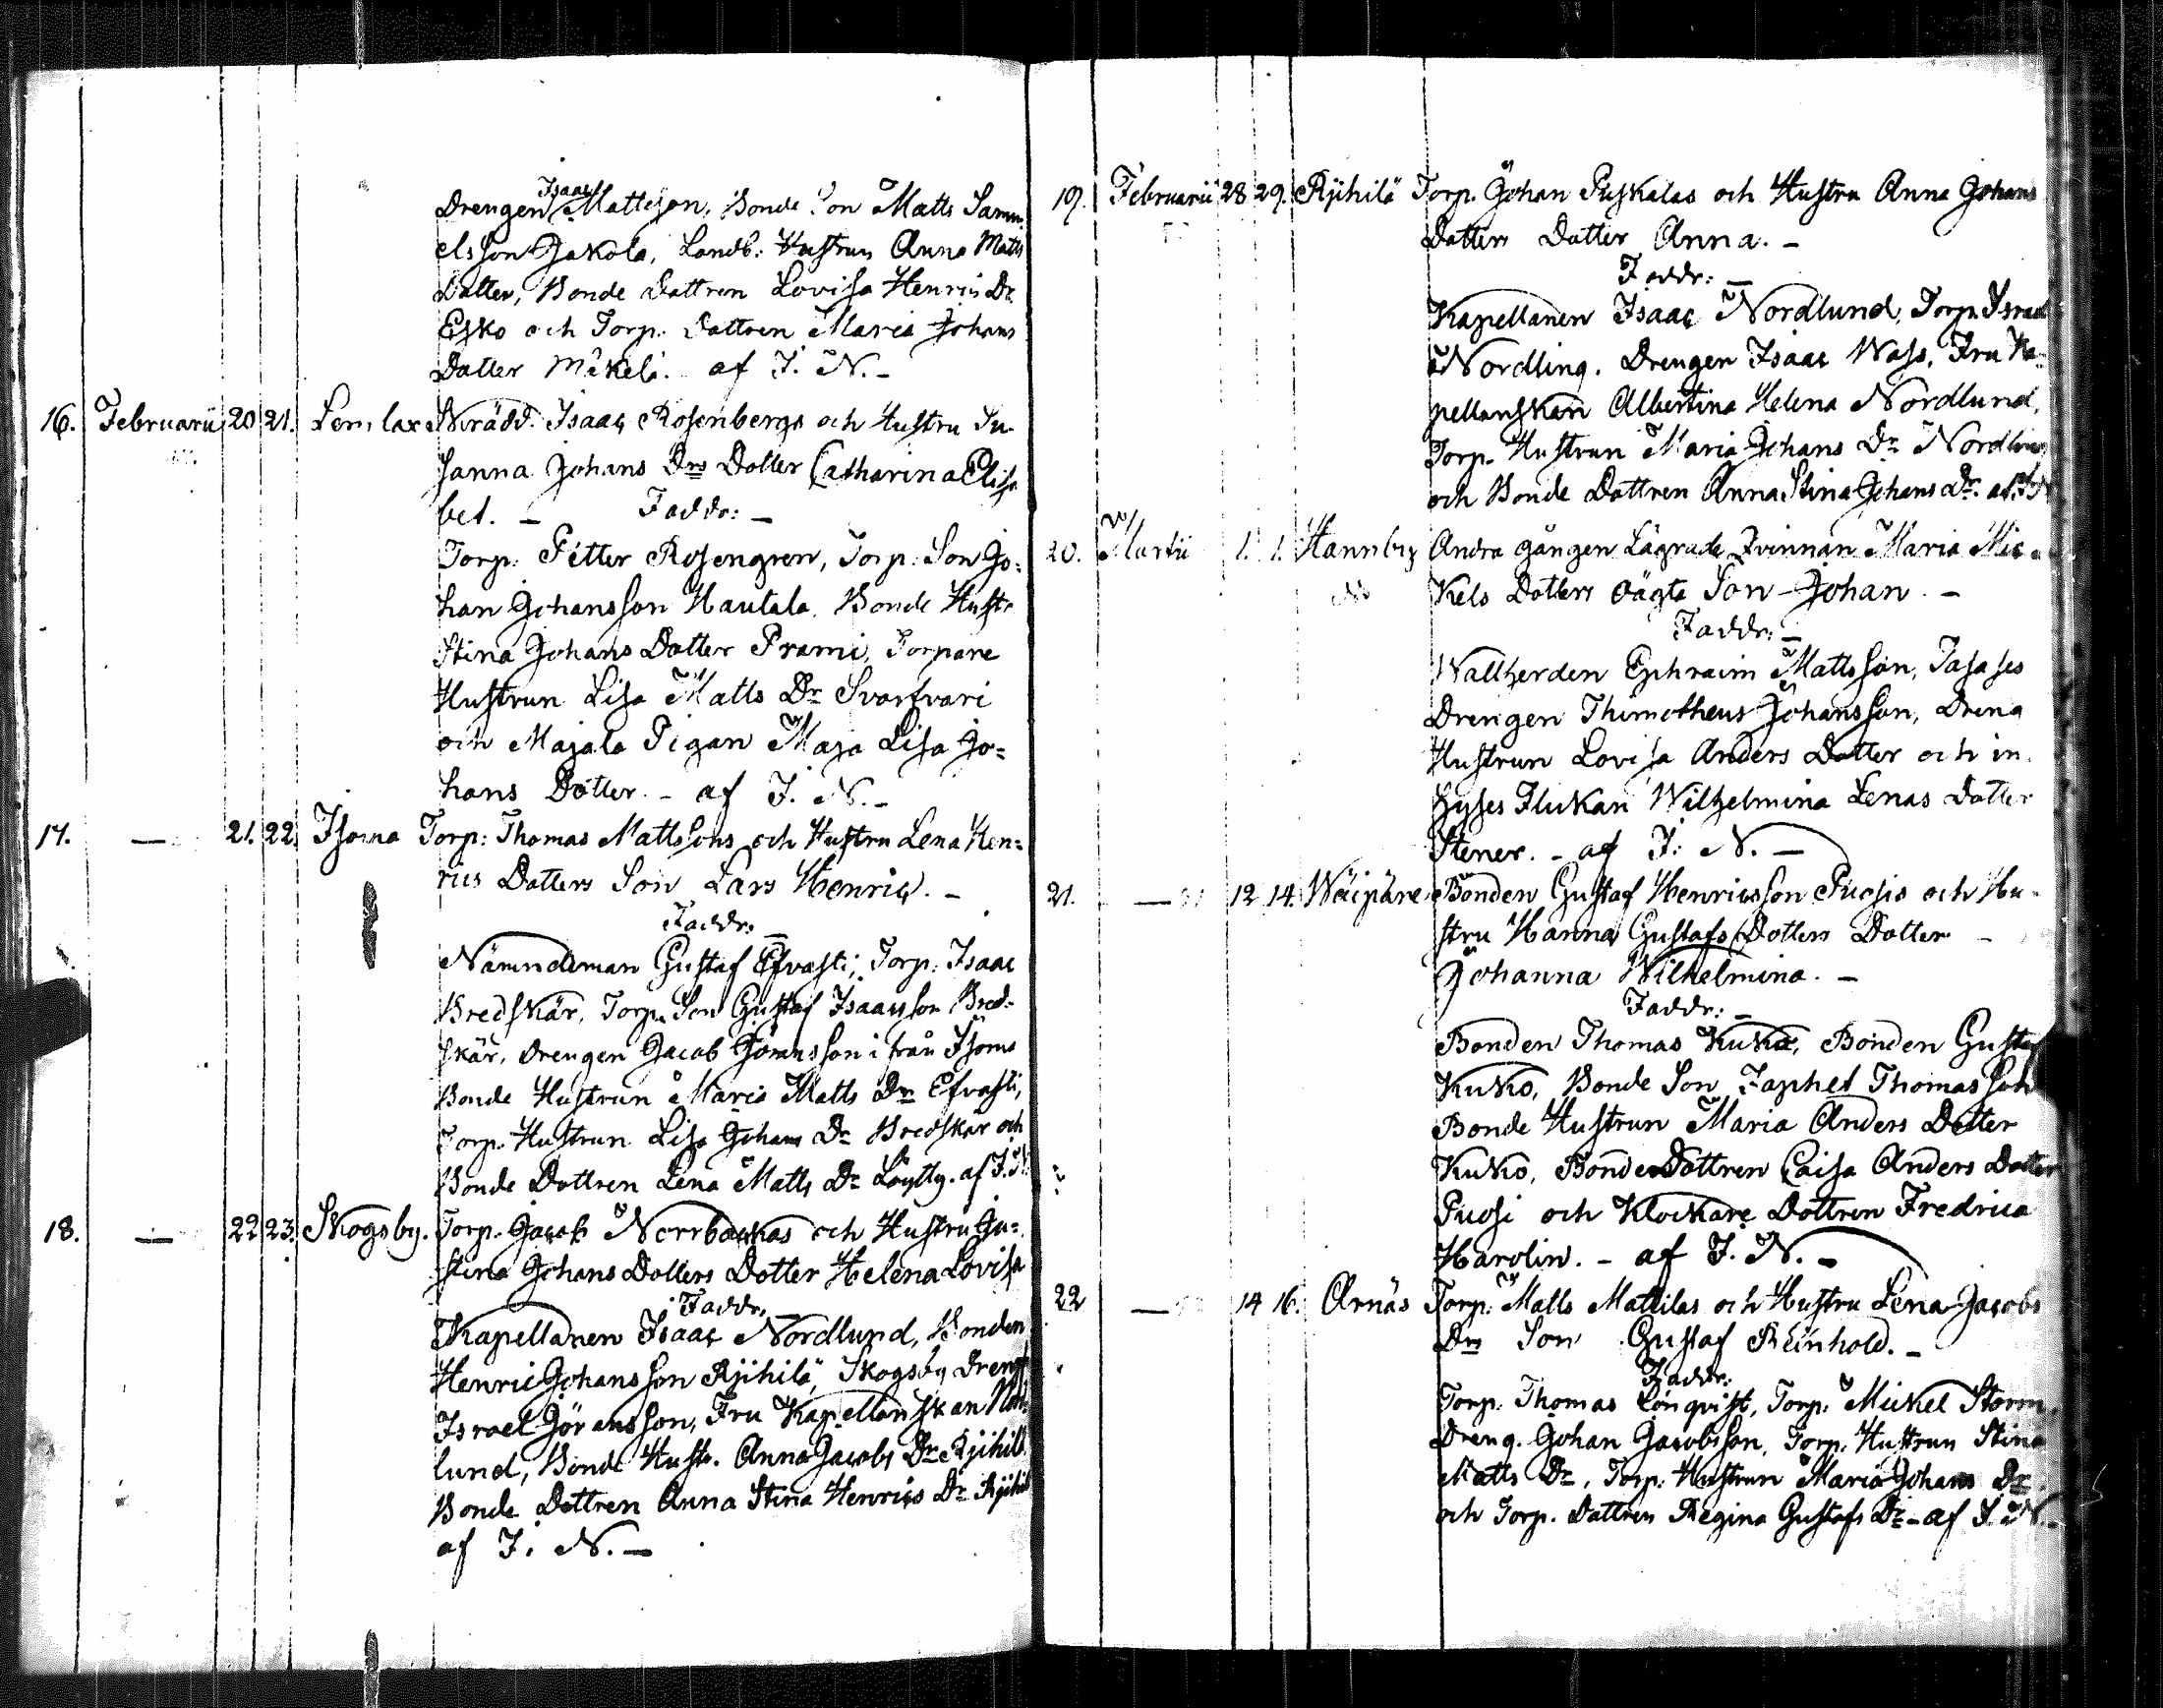 Isaac
Drengen Mattsson, Bonde Son Matts Samu
elsson Jakola, Landb: Hustrun Anna Matts
Dotter, Bonde Dottren Lovisa Henrics Dr
Esko och Torp. Dottren Maria Johans
Dotter Mäkelä. af I. N. –
16. Februarii 20 21. Lemlax Nyrådd. Isaac Rosenbergs och Hustru Su
sanna Johans Drs Dotter Catharina Elisa
bet. – Faddr: –
Torp. Petter Rosengren, Torp: Son Jo=
han Johansson Hautala, Bonde Hustr.
Stina Johans Dotter Prami, Torpare
Hustrun Lisa Matts Dr Svartvari
och Majala Pigan Maja Lisa Jo=
hans Dotter. – af I. N. –
17. — 21. 22. Isomo Torp: Thomas Mattssons och Hustru Lena Hen=
rics Dotters Son Lars Henric. –
Faddr: –
Nämndeman Gustaf Efvasti, Torp: Isaac
Bredskär, Torp. Son Gustaf Isaacsson Bred-
skär, Drengen Jacob Göransson ifrån Isomo
Bonde Hustrun Maria Matts Dr Efvasti,
Torp. Hustrun Lisa Johans Dr Bredskär och
Bonde Dottren Lena Matts Dr Löytty. af I. N.
18. — 22 23. Skogsby. Torp. Jacob Norrbackas och Hustru Ju=
stina Johans Dotters Dotter Helena Lovisa
Faddr.
Kapellanen Isaac Nordlund, Bonden
Henric Johansson Ryihilä, Skogsby Dreng
Israel Göransson, Fru Kapellanskan Nord
lund, Bonde Hustr. Anna Jacobs Dr Ryihilä
Bonde Dottren Anna Stina Henrics Dr Ryihilä
af I. N. –
19. Februarii 28 29. Ryihilä Torp. Johan Puskalas och Hustru Anna Johans
Dotters Dotter Anna. –
Faddr: –
Kapellanen Isaac Nordlund, Torp. Israel
Nordling. Drengen Isaac Wass, Fru Ka-
pellanskan Albertina Helena Nordlund,
Torp. Hustrun Maria Johans Dr Nordling
och Bonde Dottren Anna Stina Johans Dr. af I. N
20. Martii 1. 1. Hannby Andra gången Lägrade Qvinnan Maria Mic
kels Dotters oägta Son Johan. –
Faddr: –
Wallherden Ephraim Mattsson, Tasases
Drengen Thimotheus Johansson, Dreng
Hustrun Lovisa Anders Dotter och in
hyses Flickan Wilhelmina Lenas Dotter
Stener. – af I. N. –
21. — 12 14. Wäipäre Bonden Gustaf Henricsson Puosis och Hu-
stru Hanna Gustafs Dotters Dotter –
Johanna Wilhelmina. –
Faddr: –
Bonden Thomas Kuko, Bonden Gustaf
Kuko, Bonde Son Japhet Thomasson
Bonde Hustrun Maria Anders Dotter
Kuko, Bonde Dottren Caisa Anders Dotter
Puosi och Klockare Dottren Fredrica
Harolin. – af I. N. –
22 — 14 16. Arnäs Torp. Matts Mattilas och Hustru Lena Jacobs
Drs Son Gustaf Reinhold. –
Faddr:
Torp. Thomas Lönqvist, Torp: Mickel Storm,
Dreng. Johan Jacobsson, Torp. Hustrun Stina
Matts Dr, Torp: Hustrun Maria Johans Dr
och Torp. Dottren Regina Gustafs Dr – af I. N. –